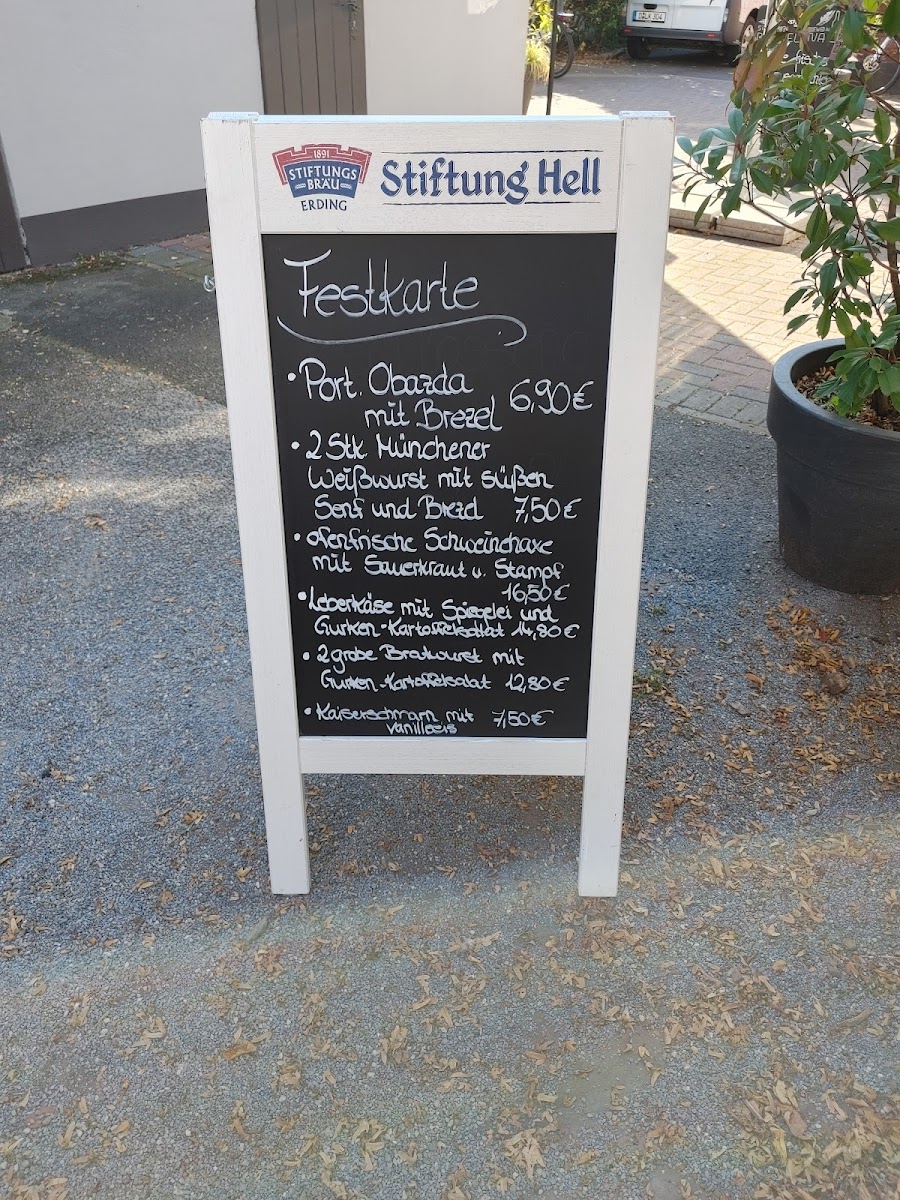 1891
STIFTUNGS
BRÄU
ERDING
Stiftung Hell
Festkarte
• Port. Obazda
mit Brezel 6,90€
• 2 Stk. Münchener
Weißwurst mit süßen
Senf und Brezel 7,50€
• ofenfrische Schweinehaxe
mit Sauerkraut u. Stampf
16,50€
• Leberkäse mit Spiegelei und
Gurken-Kartoffelsalat 14,80€
• 2 grobe Bratwurst mit
Gurken-Kartoffelsalat 12,80€
• Kaiserschmarn mit 7,50€
Vanilleeis